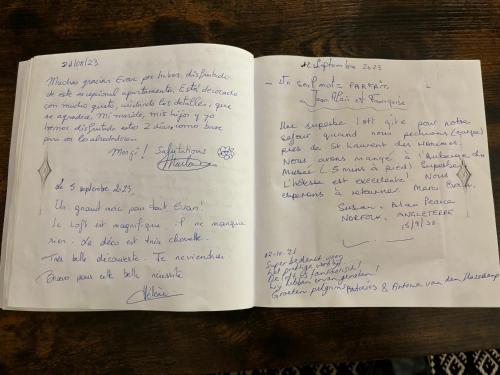 21/08/23
Muchas gracias Evan por haber disfrutado
de este excepcional apartamento. Está decorado
con mucho gusto, cuidando los detalles, que
se agradece. Mi marido, mis hijos y yo
hemos disfrutado estos 2 días como base
para ver los alrededores.
Merçi! Salutations
Marta
Le 5 septembre 2023.
Un grand merci pour tout Evan!
Le loft est magnifique. Il ne manque
rien. La déco est très chouette.
Très belle découverte. Je reviendrai.
Bravo pour cette belle réussite
Hélène
12 Septembre 2023
En seul mot: PARFAIT.
Jean Alain et Françoise
Une superbe loft gîte pour notre
séjour quand nous pêchions (carpe)
près de St Laurent des Hommes.
Nous avons mangé à l'Auberge du
Musée (5 mins à pied) Superbe
L'hôtesse est excellente! Nous
espérons à retourner. Merci Evan.
Susan, Alan Pearce
NORFOLK, ANGLETERRE
15/9/23.
02-10-23
Super bedankt voor
het prachtige verblijf
De loft is fantastisch!
Wij hebben enorm genoten!
Groeten pelgrims Antonius & Antonia van den